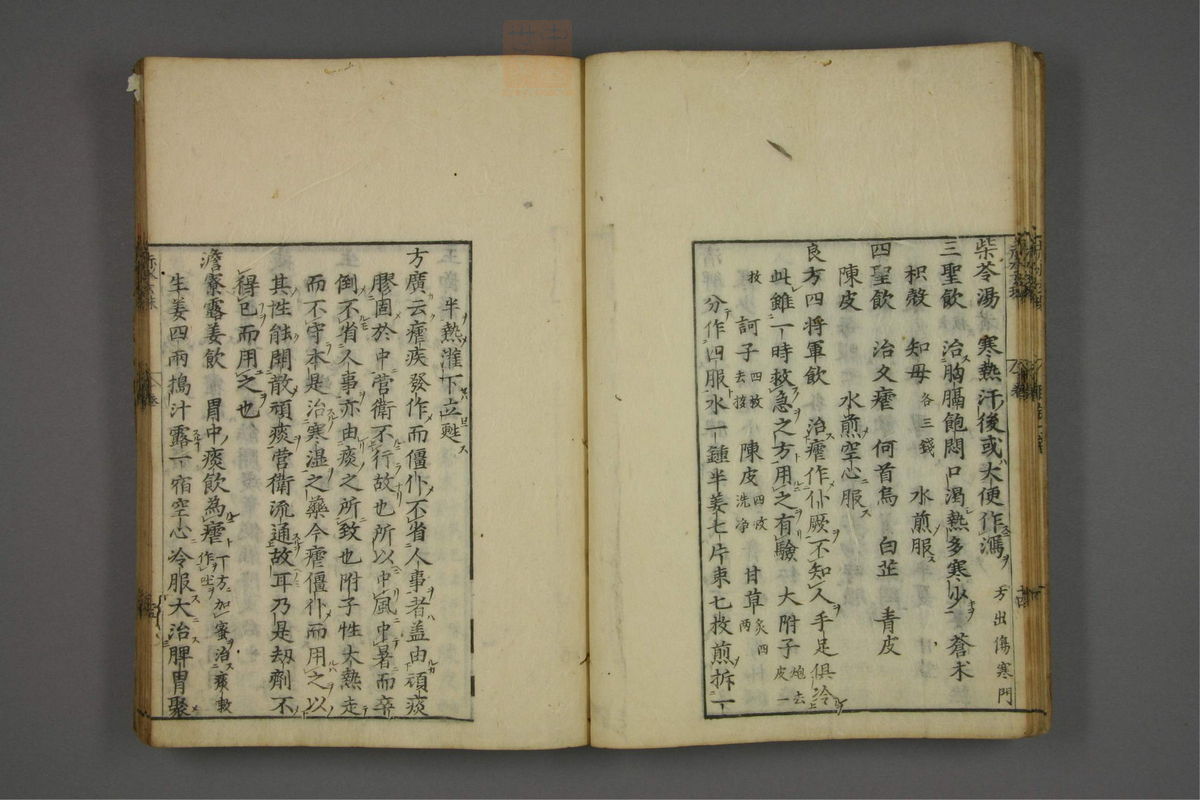 柴苓湯 寒熱汗後或大便作瀉 方出傷寒門
三聖飲 治胸膈飽悶口渴熱多寒少 蒼朮
枳殼 知母 各三錢 水煎服
四聖飲 治久瘧 何首烏 白芷 青皮
陳皮 水煎空心服
良方四將軍飲 治瘧作仆厥不知人手足俱冷
此雖一時救急之方用之有驗 大附子 炮去皮一
枚 訶子 四枚去核 陳皮 四枚洗淨 甘草 炙四兩
分作四服水一鍾半姜七片棗七枚煎折一
半熱灌下立甦
方廣云瘧疾發作而僵仆不省人事者蓋由頑痰
膠固於中營衛不行故也所以中風中暑而卒
倒不省人事亦由痰之所致也附子性大熱走
而不守本是治寒濕之藥今瘧僵仆而用之以
其性能開散頑痰營衛流通故耳乃是劫劑不
得已而用之也
澹寮露姜飲 胃中痰飲為瘧 一方加蜜治痰嗽作
生姜四兩搗汁露一宿空心冷服大治脾胃聚